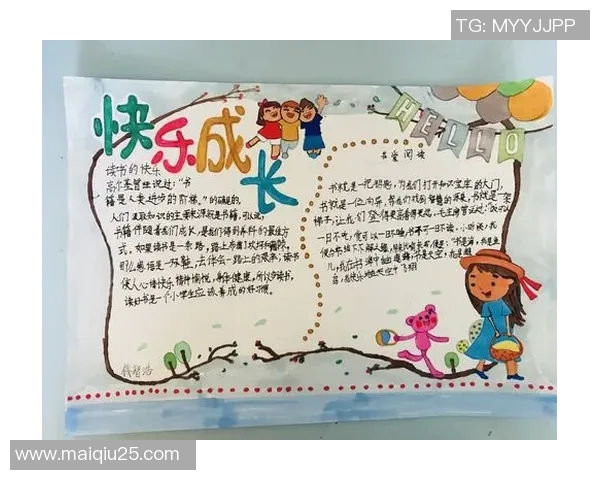 TG: MYYJJPP
快乐成长
HELLO
读书的快乐
高尔基曾经说过："书
籍是人类进步的阶梯。"的确是的,
人们汲取知识的主要来源就是书籍,可以说,
书籍伴随着我们成长,是我们得到养料的最佳方
式。如果读书是一条路,路上布满了坎坷和崎岖,
那么书垣是一双鞋,去体会一路上的艰辛,读书
使人心情快乐,精神愉悦,身体健康,所以多读书,
读好书是一个小学生应该养成的好习惯。
钱智浩
书爱阅读
书就是一把钥匙,为我们打开知识宝库的大门,
书就是一位向导,带我们找到智慧的源泉,书就是一架
梯子,让我们登得更高看得更远,毛主席曾说过:"饭可以
一日不吃,觉可以一日不睡,书不可一日不读,
书是海,我是鱼
儿,我在书海中自由遨翔,书是天空,我是翅
鸟,我快乐地在天空中飞翔
www.maiqiu25.com